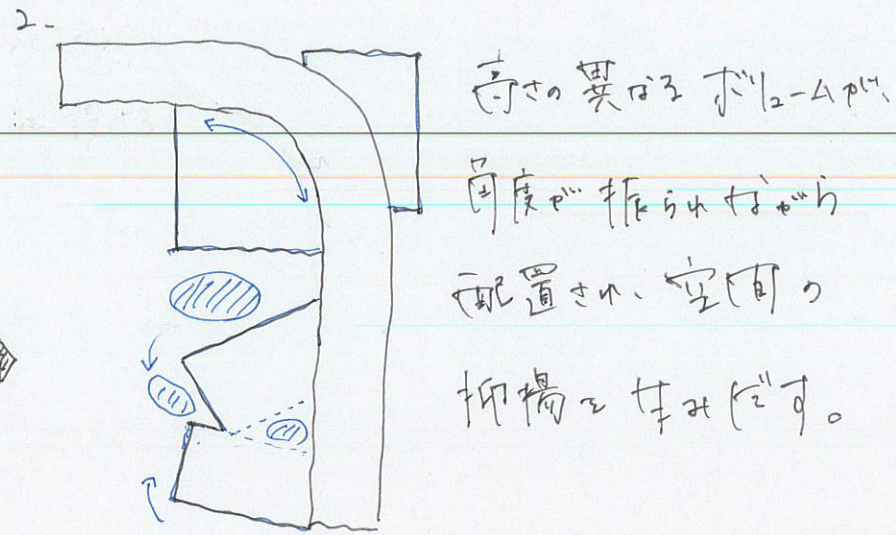 2-
高さの異なるボリュームが、
角度が振られながら
配置され、空間の
抑揚を生みだす。